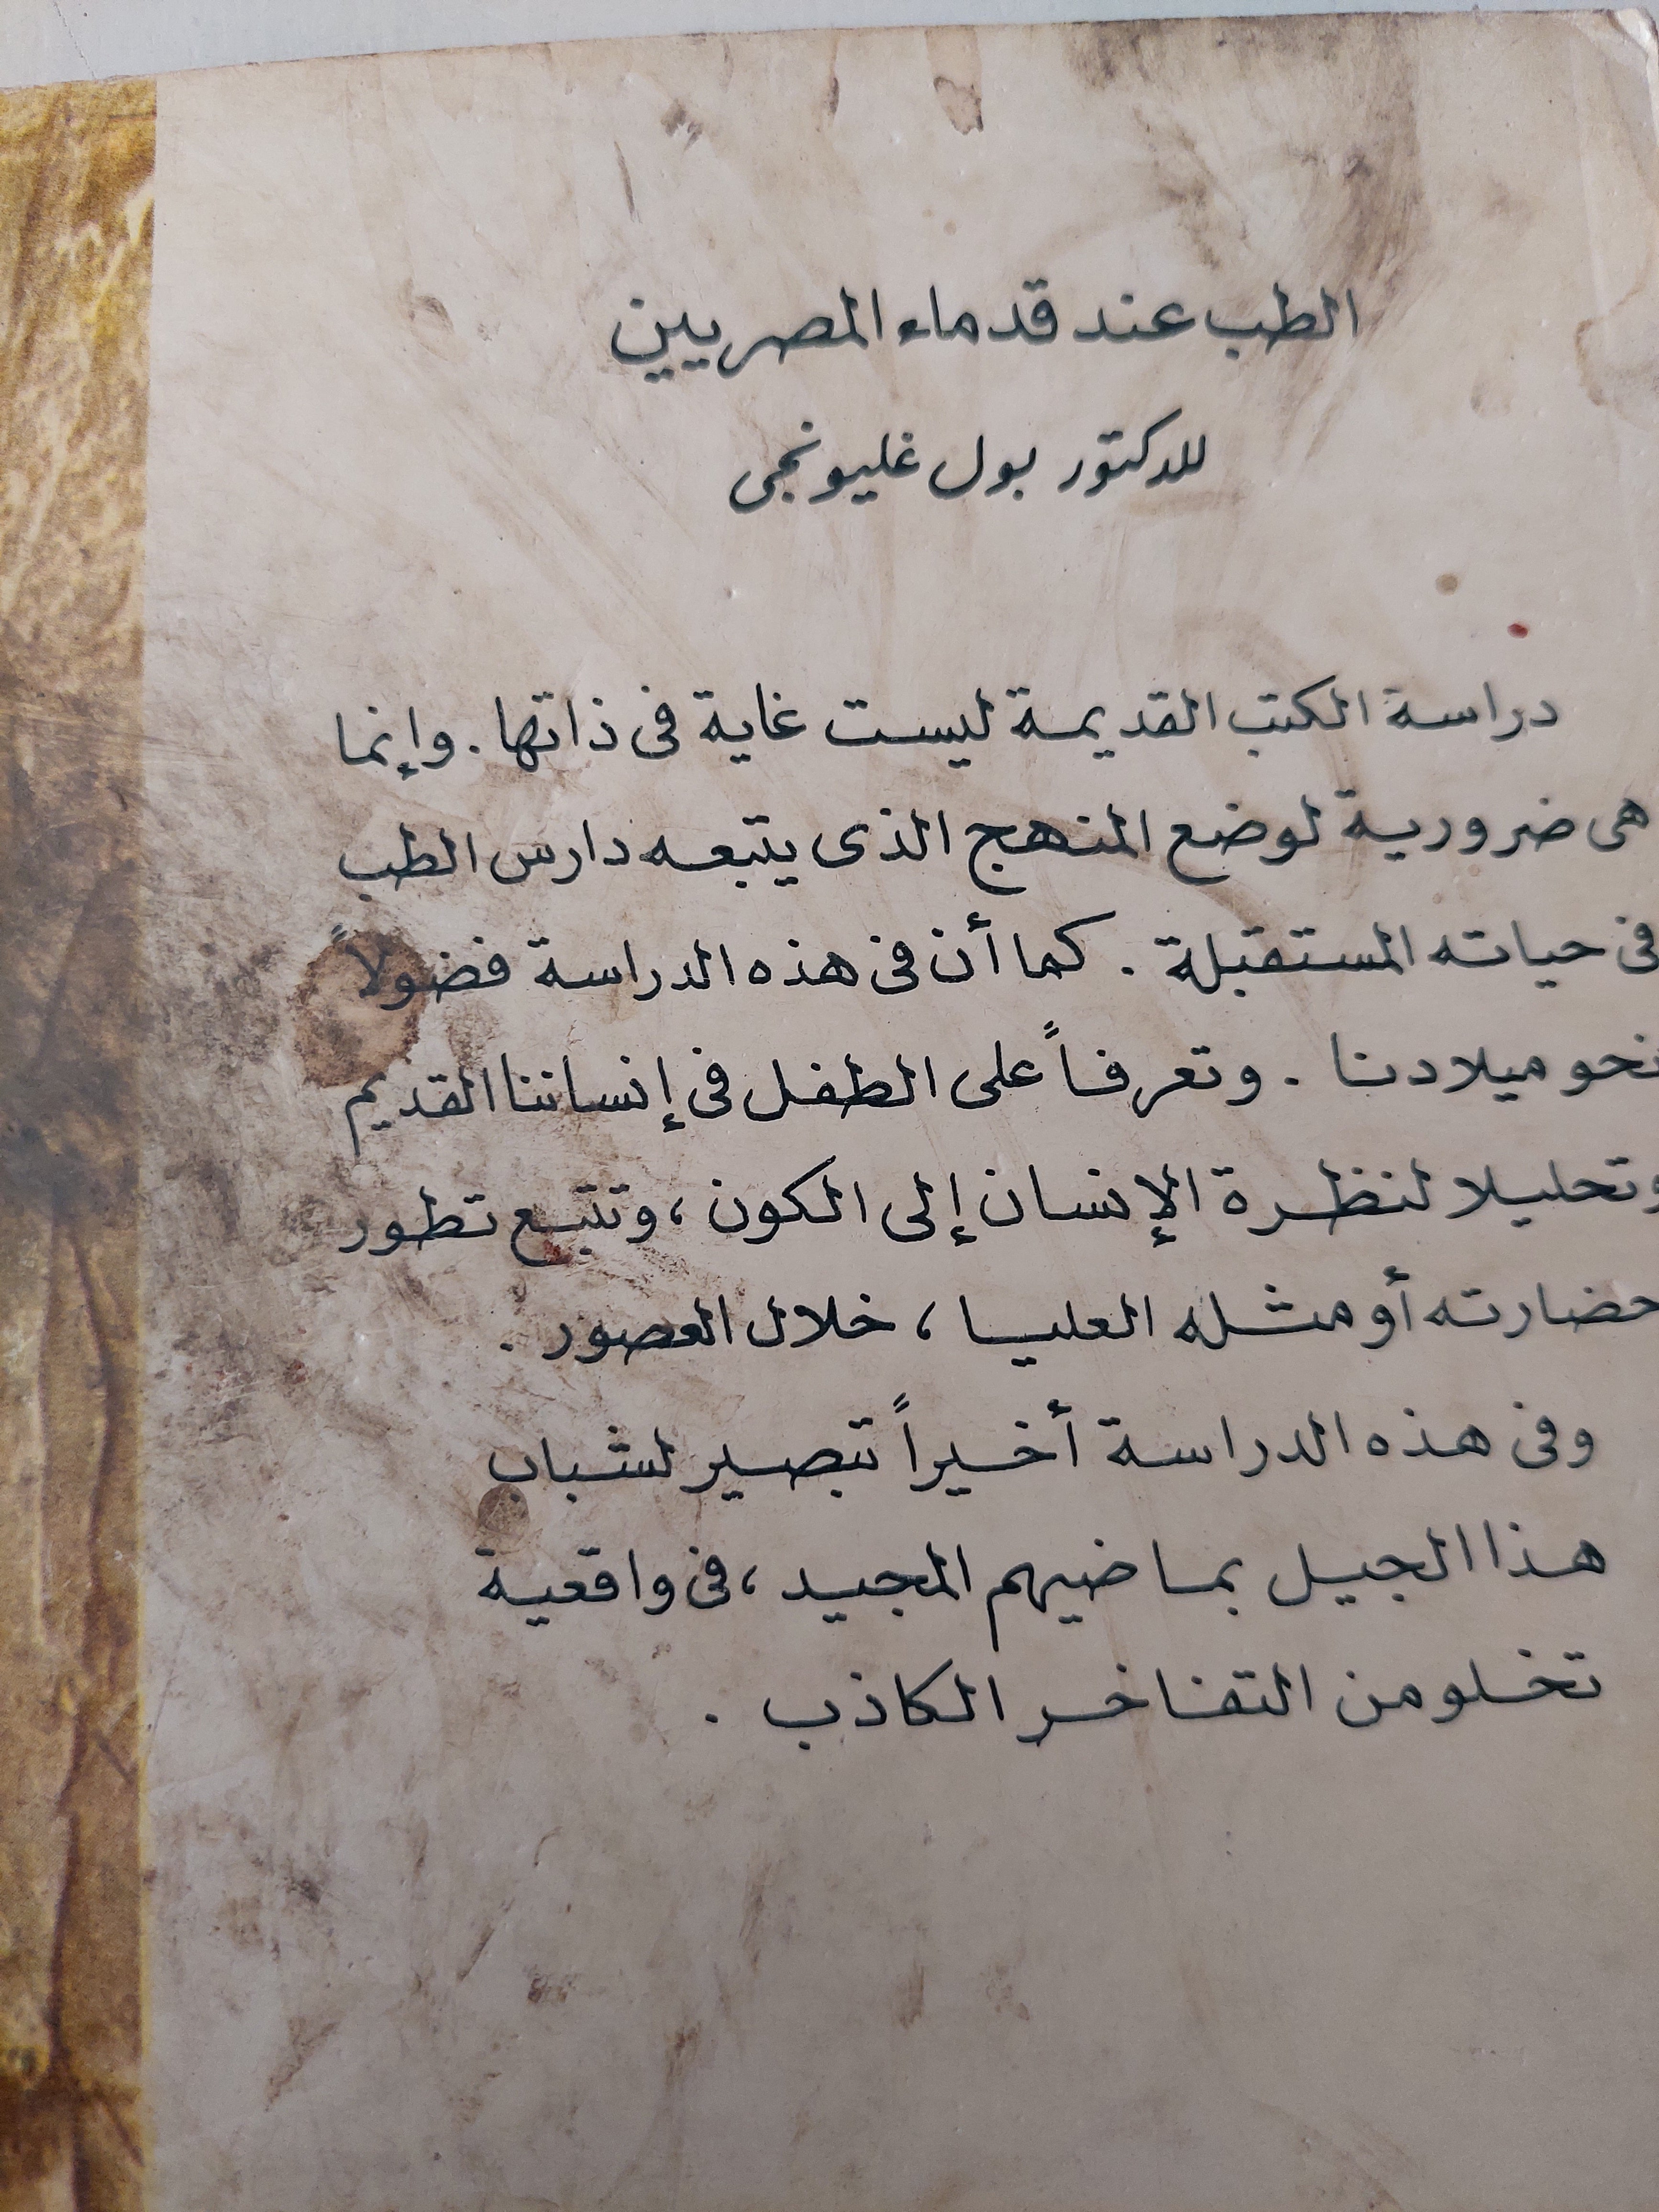 الطب عند قدماء المصريين
للدكتور بول غليونجى
دراسة الكتب القديمة ليست غاية فى ذاتها . وإنما
هى ضرورية لوضع المنهج الذى يتبعه دارس الطب
فى حياته المستقبلة . كما أن فى هذه الدراسة فضولاً
نحو ميلادنا . وتعرفاً على الطفل فى إنساننا القديم
وتحليلا لنظرة الإنسان إلى الكون ، وتتبع تطور
حضارته أو مثله العليا ، خلال العصور .
وفى هذه الدراسة أخيراً تبصير لشباب
هذا الجيل بماضيهم المجيد ، فى واقعية
تخلو من التفاخر الكاذب .